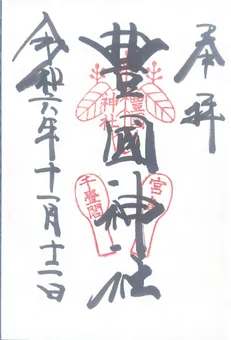 奉拝
豊國神社
令和六年十一月十二日
神社
宮
千畳閣